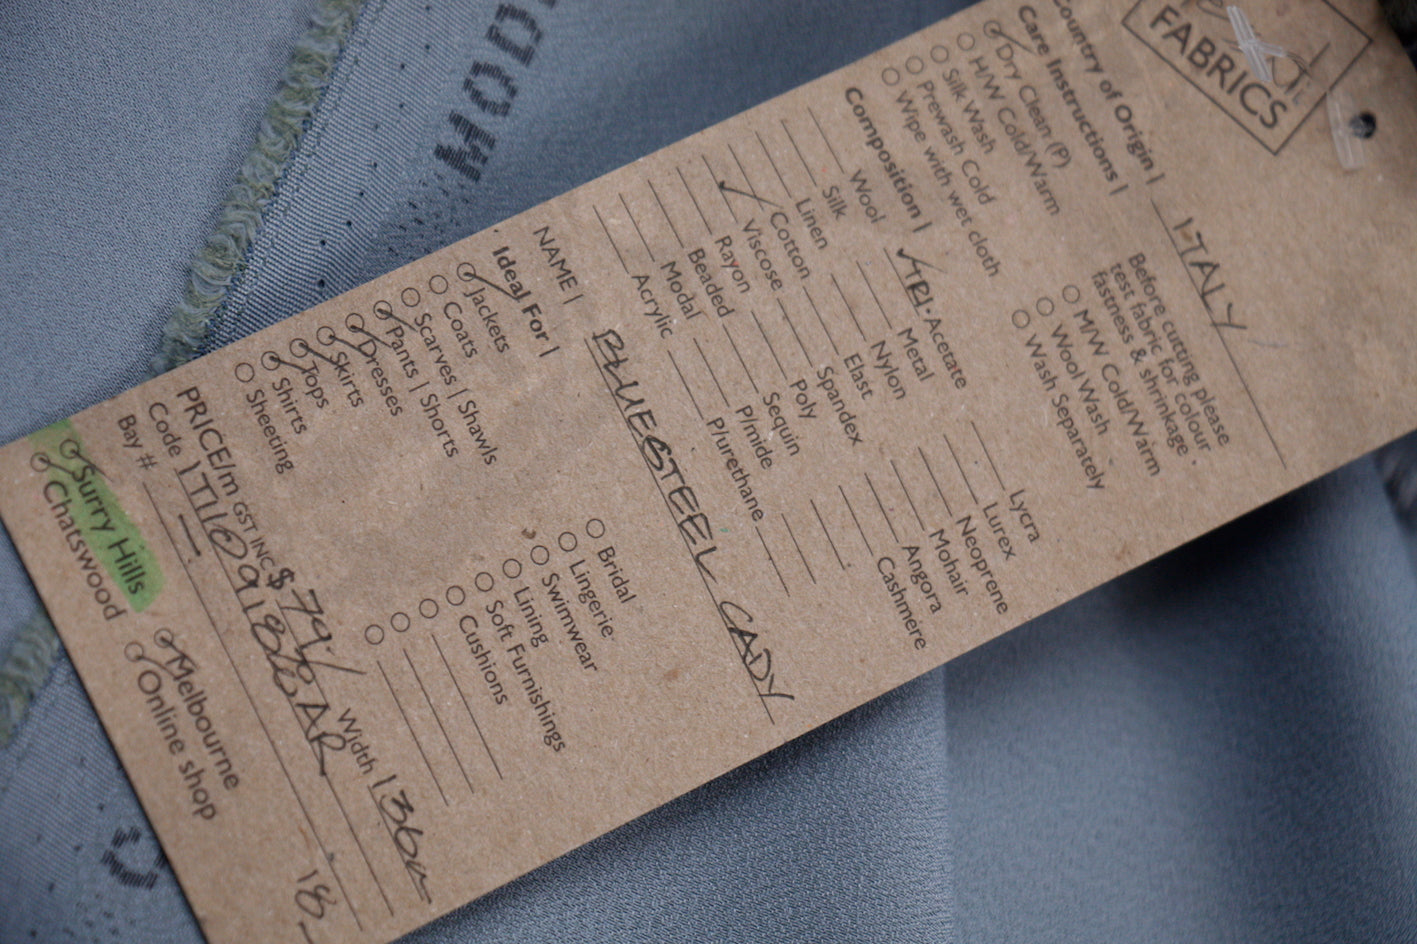 FABRICS
Country of Origin | ITALY
Care Instructions | Before cutting please
test fabric for colour
fastness & shrinkage.
Dry Clean (P)
H/W Cold/Warm M/W Cold/Warm
Silk Wash Wool Wash
Prewash Cold Wash Separately
Wipe with wet cloth
Composition |
Wool TRI-Acetate Lycra
Silk Metal Lurex
Linen Nylon Neoprene
Cotton Elast Mohair
Viscose Spandex Angora
Rayon Poly Cashmere
Beaded Sequin
Modal P/mide
Acrylic P/urethane
NAME | BLUESTEEL CADY
Ideal For |
Jackets Bridal
Coats Lingerie
Scarves | Shawls Swimwear
Pants | Shorts Lining
Dresses Soft Furnishings
Skirts Cushions
Tops
Shirts
Sheeting
PRICE/m GST INC $79./ Width 136cm
Code
Bay # 18
Surry Hills Melbourne
Chatswood Online shop
MOD